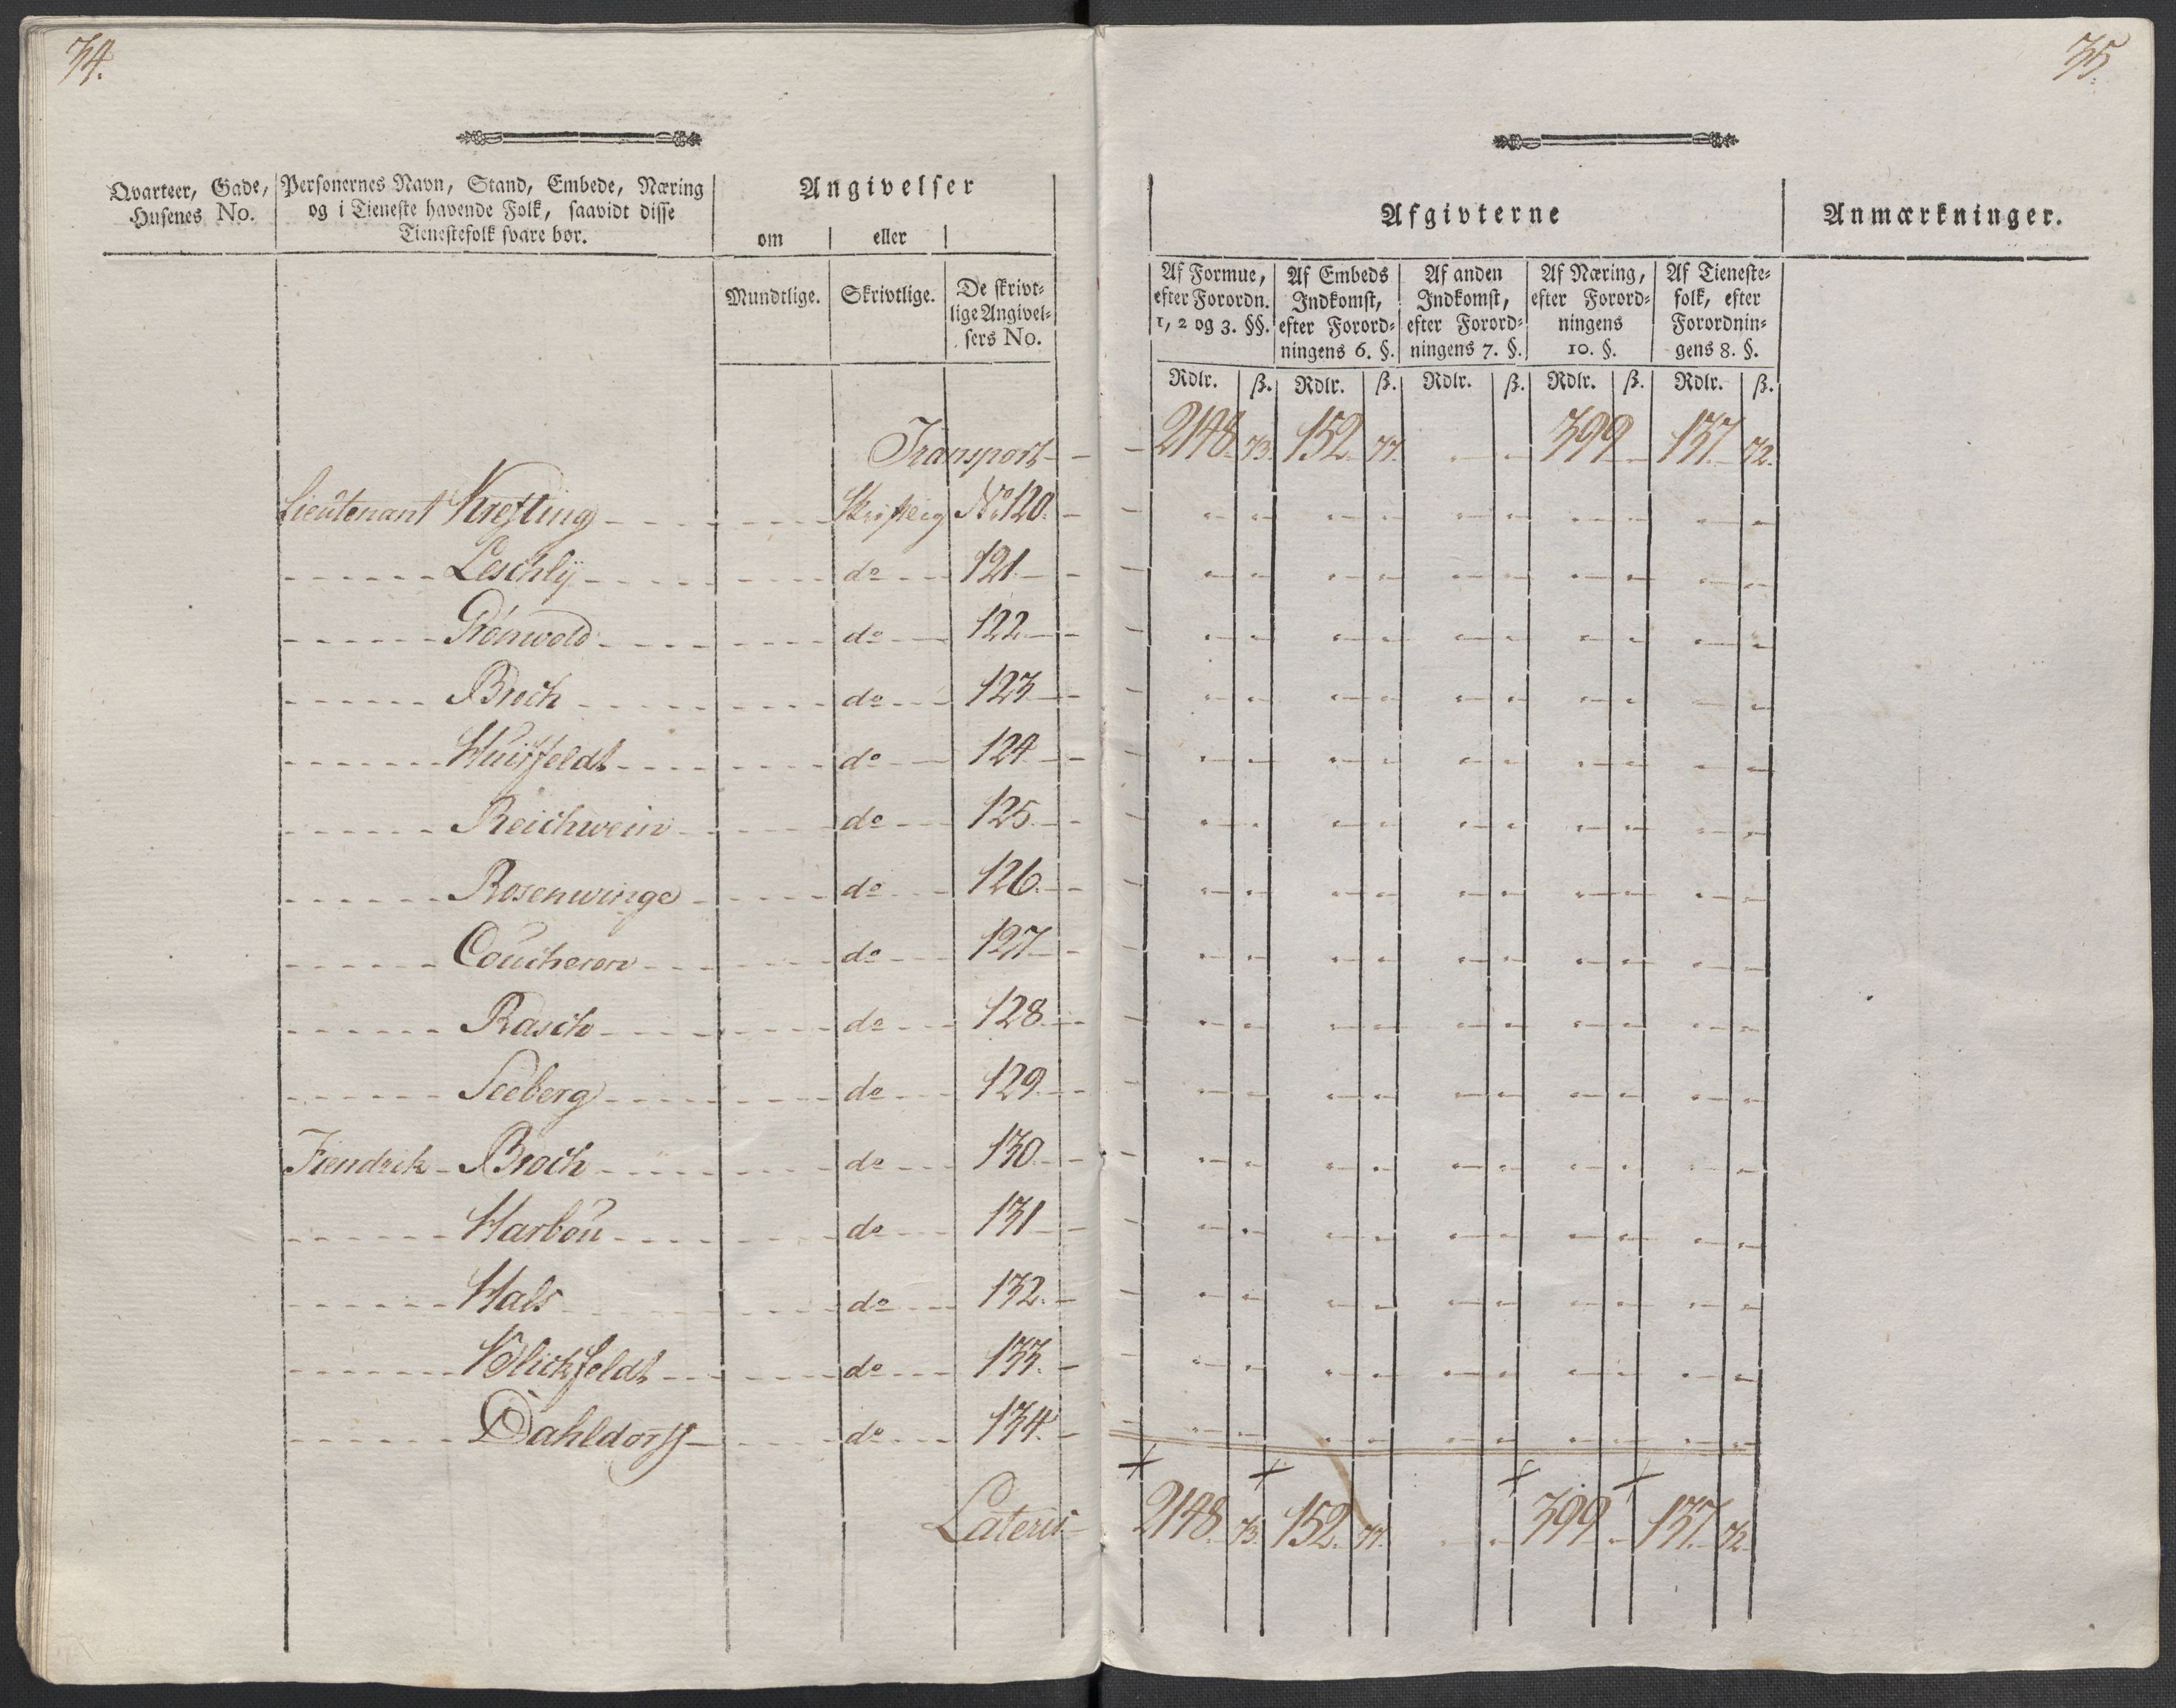 34.
Qvarteer, Gade, Husenes No.
Personernes Navn, Stand, Embede, Næring
og i Tieneste havende Folk, saavidt disse
Tienestefolk svare bør.
Angivelser
om | eller |
Mundtlige. Skrivtlige. De skrivt-
lige Angivel-
sers No.
Transport
Lieutenant Krefting Skriftlig No 120.
Leschly do 121.
Grónwold do 122
Broch do 123
Huitfeldt do 124
Reichwein do 125
Rosenwinge do 126.
Coucheron do 127
Rasch do 128
Seeberg do 129
Fiendrik Broch do 130
Harbou do 131
Hals do 132.
Blickfeldt do 133.
Dahldorff do 134.
Lateris
35.
Afgivterne
Anmærkninger.
Af Formue,
efter Forordn.
1, 2 og 3. §§.
Af Embeds
Indkomst,
efter Forord-
ningens 6. §.
Af anden
Indkomst,
efter Forord-
ningens 7. §.
Af Næring,
efter Forord-
ningens
10. §.
Af Tieneste-
folk, efter
Forordnin-
gens 8. §.
Rdlr. ß. Rdlr. ß. Rdlr. ß. Rdlr. ß. Rdlr. ß.
2148 73. 152. 77. 399 137. 72.
2148 73. 152. 77. 399 137. 72